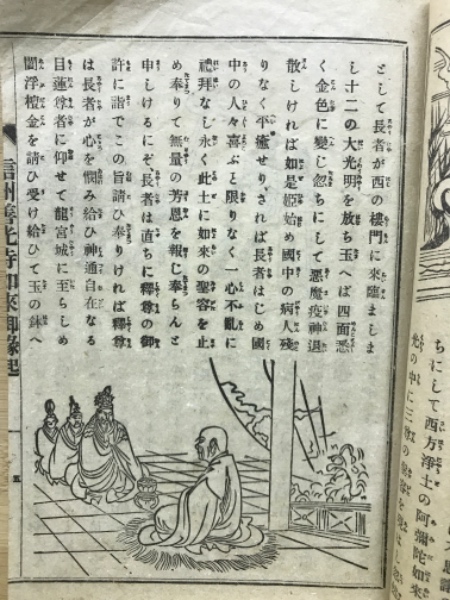 として長者が西の樓門に來臨ましま
し十二の大光明を放ち玉へば四面悉
く金色に變じ忽ちにして惡魔疫神退
散しければ如是姫始め國中の病人殘
りなく平癒せり、されば長者はじめ國
中の人々喜ぶと限りなく一心不亂に
禮拜なし永く此土に如來の聖容を止
め奉りて無量の芳恩を報じ奉らんと
申しけるにぞ長者は直ちに釋尊の御
許に詣でこの旨請ひ奉りければ釋尊
は長者が心を憫み給ひ神通自在なる
目蓮尊者に仰せて龍宮城に至らしめ
閻浮檀金を請ひ受け給ひて玉の鉢へ
信州善光寺如來御緣起
五
ちにして西方淨土の阿彌陀如來
光の中に三尊の